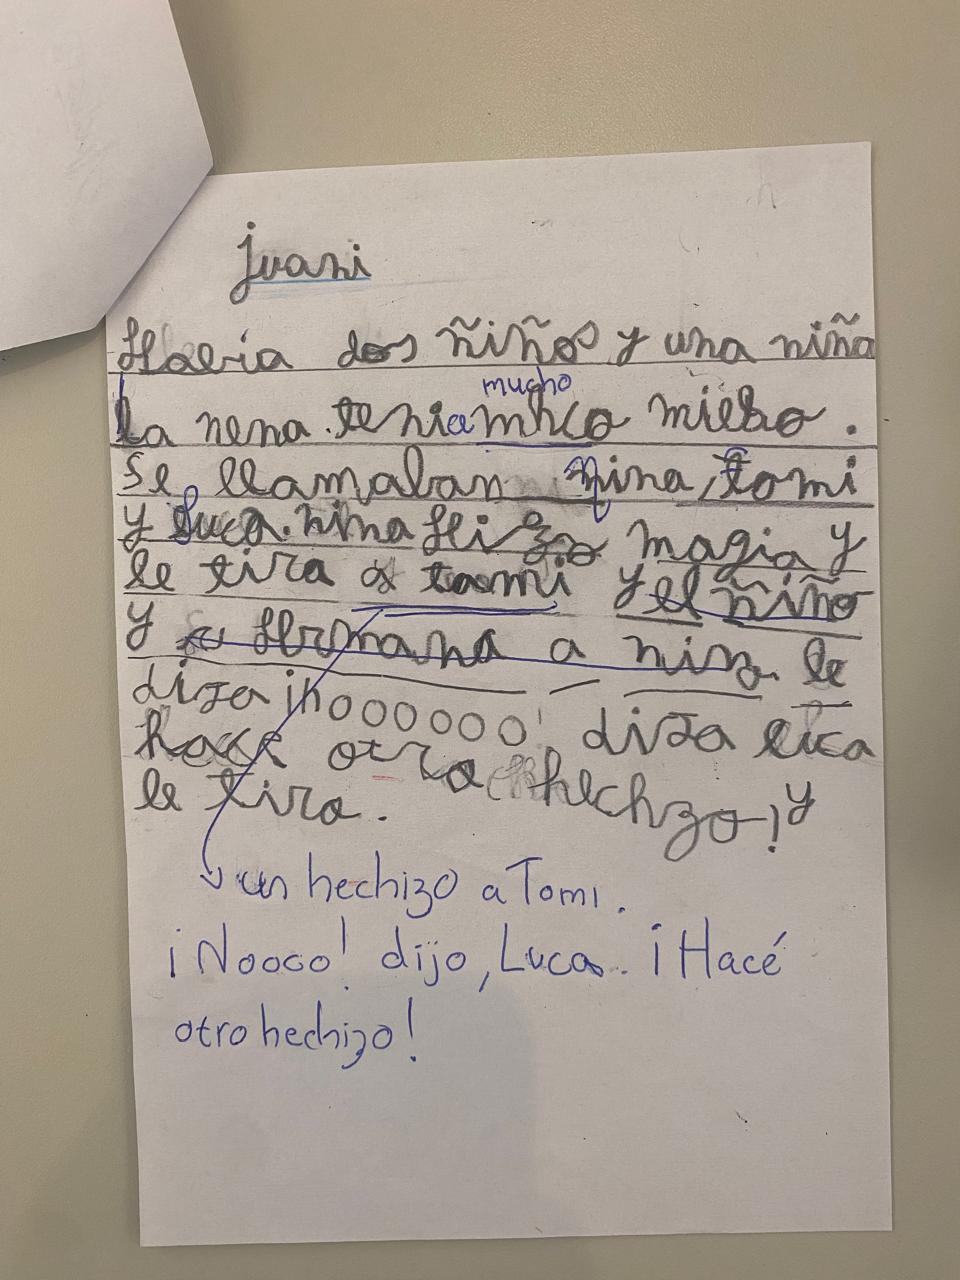 juani
Habia dos ñiños y una niña
mucho
La nena tenia mhco miedo.
Se llamaban Nina, tomi
y Luca. nina Hizo magia y
le tira a toomi y el ñiño
y su Hermana a nina. le
diza ¡nooooooo! diza luca
hace otra hechzo! y
le tira.
un hechizo a Tomi.
¡Noooo! dijo, Luca. ¡Hacé
otro hechizo!